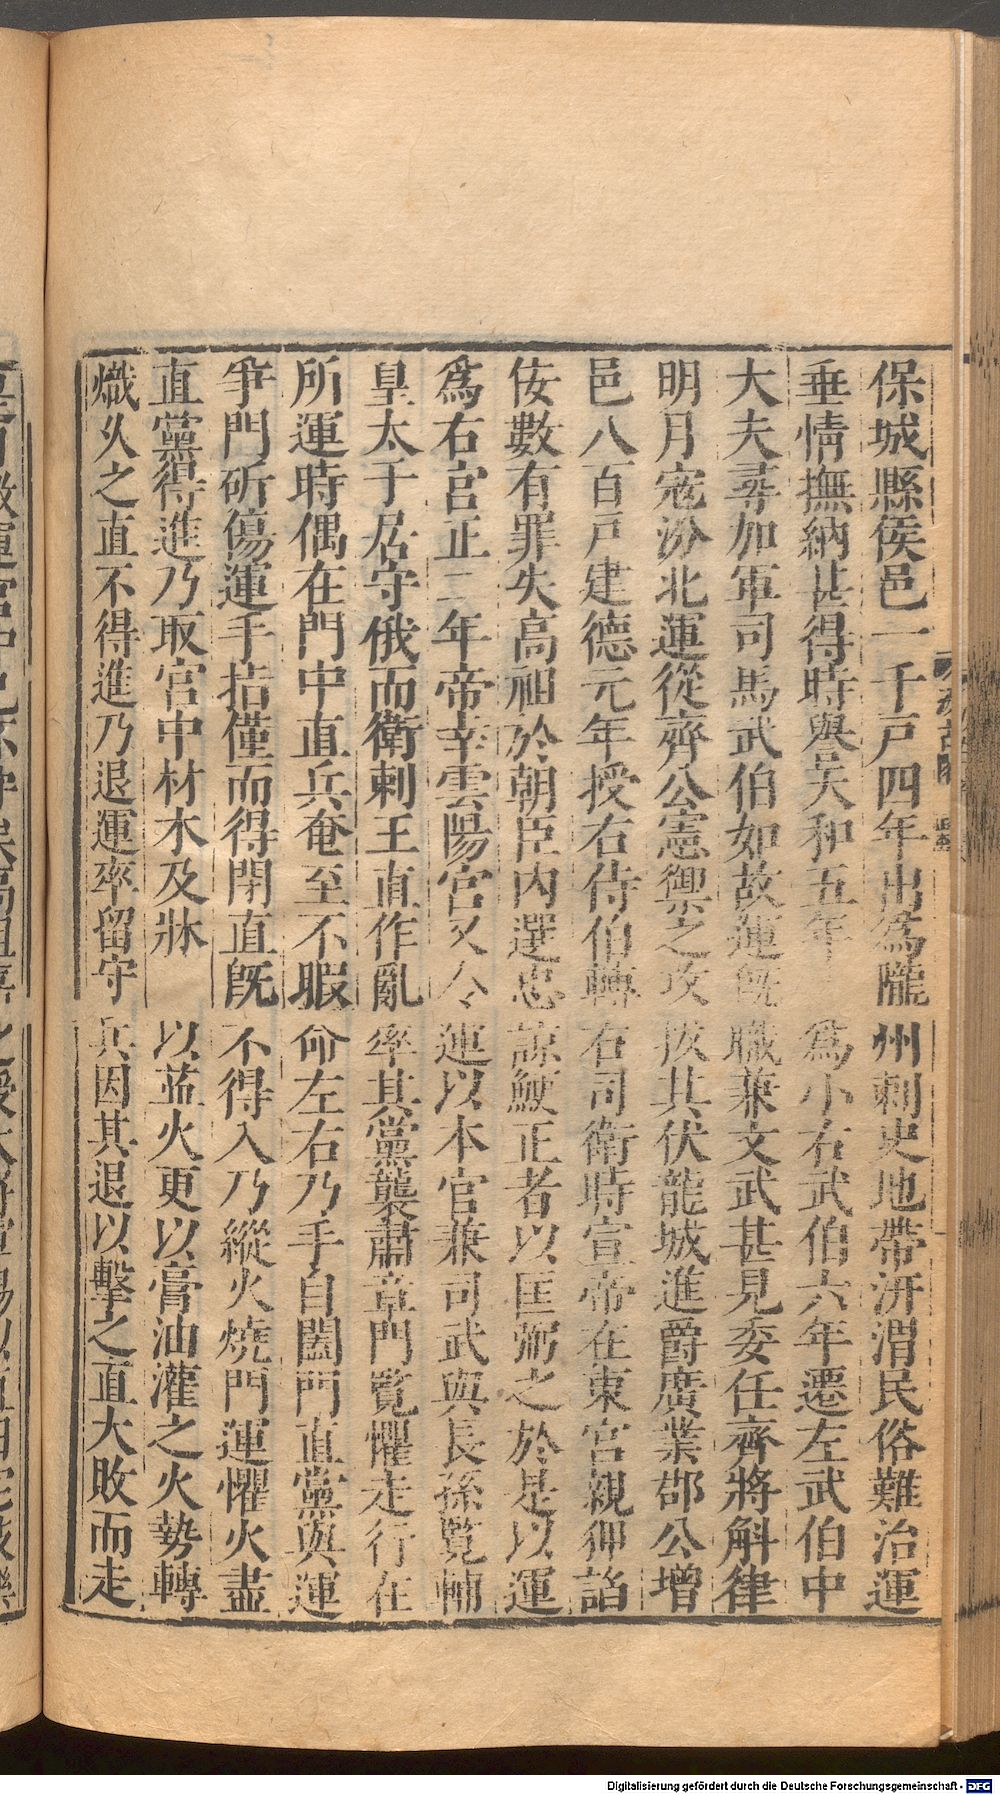 保城縣侯邑一千戸四年出為隴州刺史地帶汧渭民俗難治運
垂情撫納甚得時譽天和五年為小右武伯六年遷左武伯中
大夫尋加軍司馬武伯如故運既職兼文武甚見委任齊將斛律
明月寇汾北運從齊公憲禦之攻㧞其伏龍城進爵廣業郡公增
邑八百戸建德元年授右侍伯轉右司衛時宣帝在東宮親狎諂
佞數有罪失高祖於朝臣内選忠諒鯁正者以匡弼之於是以運
為右宮正三年帝幸雲陽宮又令運以本官兼司武與長孫覽輔
皇太子居守俄而衛剌王直作亂率其黨襲肅章門覽懼走行在
所運時偶在門中直兵奄至不暇命左右乃手自闔門直黨與運
爭門斫傷運手指僅而得閉直既不得入乃縱火燒門運懼火盡
直黨得進乃取宮中材木及牀以益火更以膏油灌之火勢轉
熾久之直不得進乃退運率留守兵因其退以擊之直大敗而走
Digitalisierung gefördert durch die Deutsche Forschungsgemeinschaft - DFG